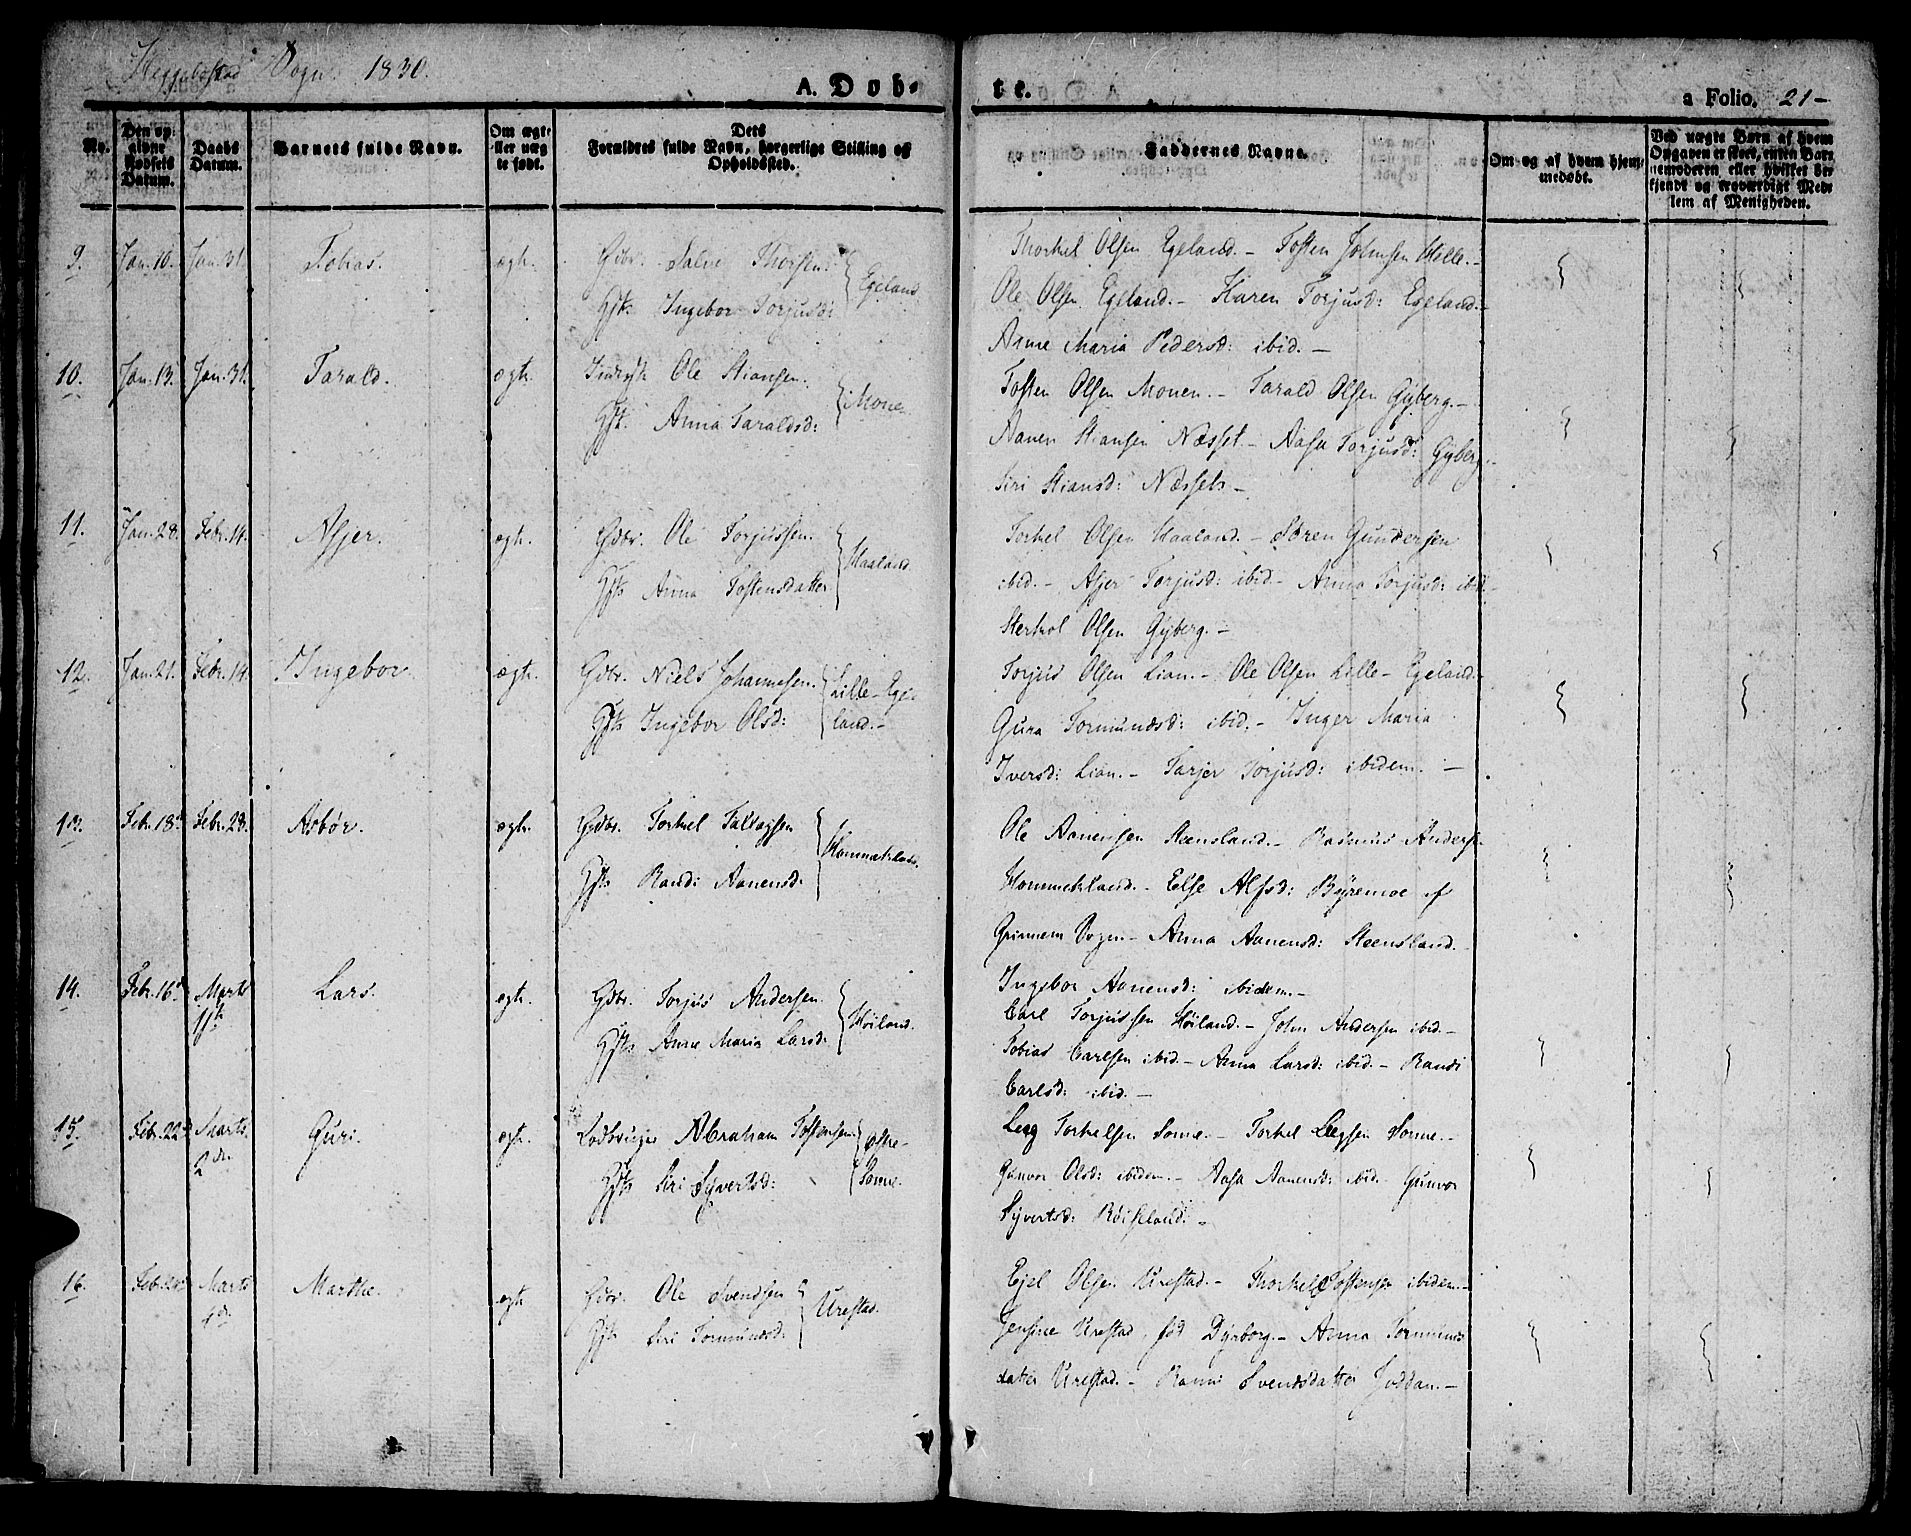 Heggebostad Sogn 1830.
A. Døb- te. a Folio. 21-
No. Den opgivne Fødsels Datum. Daabs Datum. Barnets fulde Navn. Om ægte eller uægte født. Dets Forældres fulde Navn, borgerlige Stilling og Opholdssted. Faddernes Navne. Om og af hvem hjemmedøbt. Ved uægte Børn af hvem Opgaven er skeet, enten Barnemoderen eller hvilket bekjendt og troværdigt Medlem af Menigheden.
9. Jan. 10. Jan. 31. Tobias. ægte. Gdbr. Salve Thorsen Egeland
Hst. Ingebor Torjusd:
Thorkel Olsen Egeland. - Tosten Johnsen Helle. -
Ole Olsen Egeland. - Karen Torjusd: Egeland. -
Anne Maria Pedersd: ibid. -
10. Jan. 13. Jan. 31. Tarald. ægte. Ole Stiansen. Monen
Hst. Anna Taraldsd:
Tosten Olsen Monen. - Tarald Olsen Gyberg. -
Aanen Stiansen Næsset. - Aasa Torjusd: Gyberg. -
Siri Stiansd: Næsset. -
11. Jan. 28. Febr. 14. Asjer. ægte. Gdbr. Ole Torjussen. Haaland.
Hst. Anna Tostensdatter
Torkel Olsen Haaland. - Søren Gundersen
ibid. - Asjer Torjusd: ibid. - Anna Torjusd: ibid. -
Sterkol Olsen Gyberg. -
12. Jan. 21. Febr. 14. Ingebor. ægte. Gdbr. Niels Johannesen. Lille-Ege-
Hst. Ingebor Olsd: land. -
Torjus Olsen Lian. - Ole Olsen Lille-Egeland. -
Gura Tormundsd: ibid. - Inger Maria
Iversd: Lian. - Tarjer Torjusd: ibidem. -
13. Febr. 18. Febr. 28. Asbør. ægte. Gdbr. Torkel Tallagsen Hommekland.
Hst. Randi Aanensd:
Ole Aanensen Steensland. - Rasmus Anders.
Hommekland. - Else Alfsd: Byremoe af
Grinnem Sogn. - Anna Aanensd: Steensland. -
Ingebor Aanensd: ibidem. -
14. Febr. 16. Marts Lars. ægte. Gdbr. Torjus Andersen. Høiland.
Hst. Anne Maria Larsd:
Carl Torjussen Høiland. - John Andersen ibid. -
Tobias Carlsen ibid. - Anna Larsd: ibid. - Randi
Carlsd: ibid. -
15. Febr. 22. Marts Guri. ægte. Abraham Tostensen Østre-
2den Hst. Siri Syvertsd: Sonne.
Leeg Torkelsen Sonne. - Torkel Legsen Sonne. -
Gunvor Olsd: ibidem. - Aasa Aanensd: ibid. - Gunvor
Syvertsd: Røiseland. -
16. Febr. Marts Marthe. ægte Gdbr. Ole Svendsen Urestad.
Hst. Siri Tormundsd:
Ejel Olsen Urestad. - Thorkel Tostensen ibidem. -
Jensine Urestad, fød Dyrborg. - Anna Tormunds
datter Urestad. - Svendsdatter Joddan. -